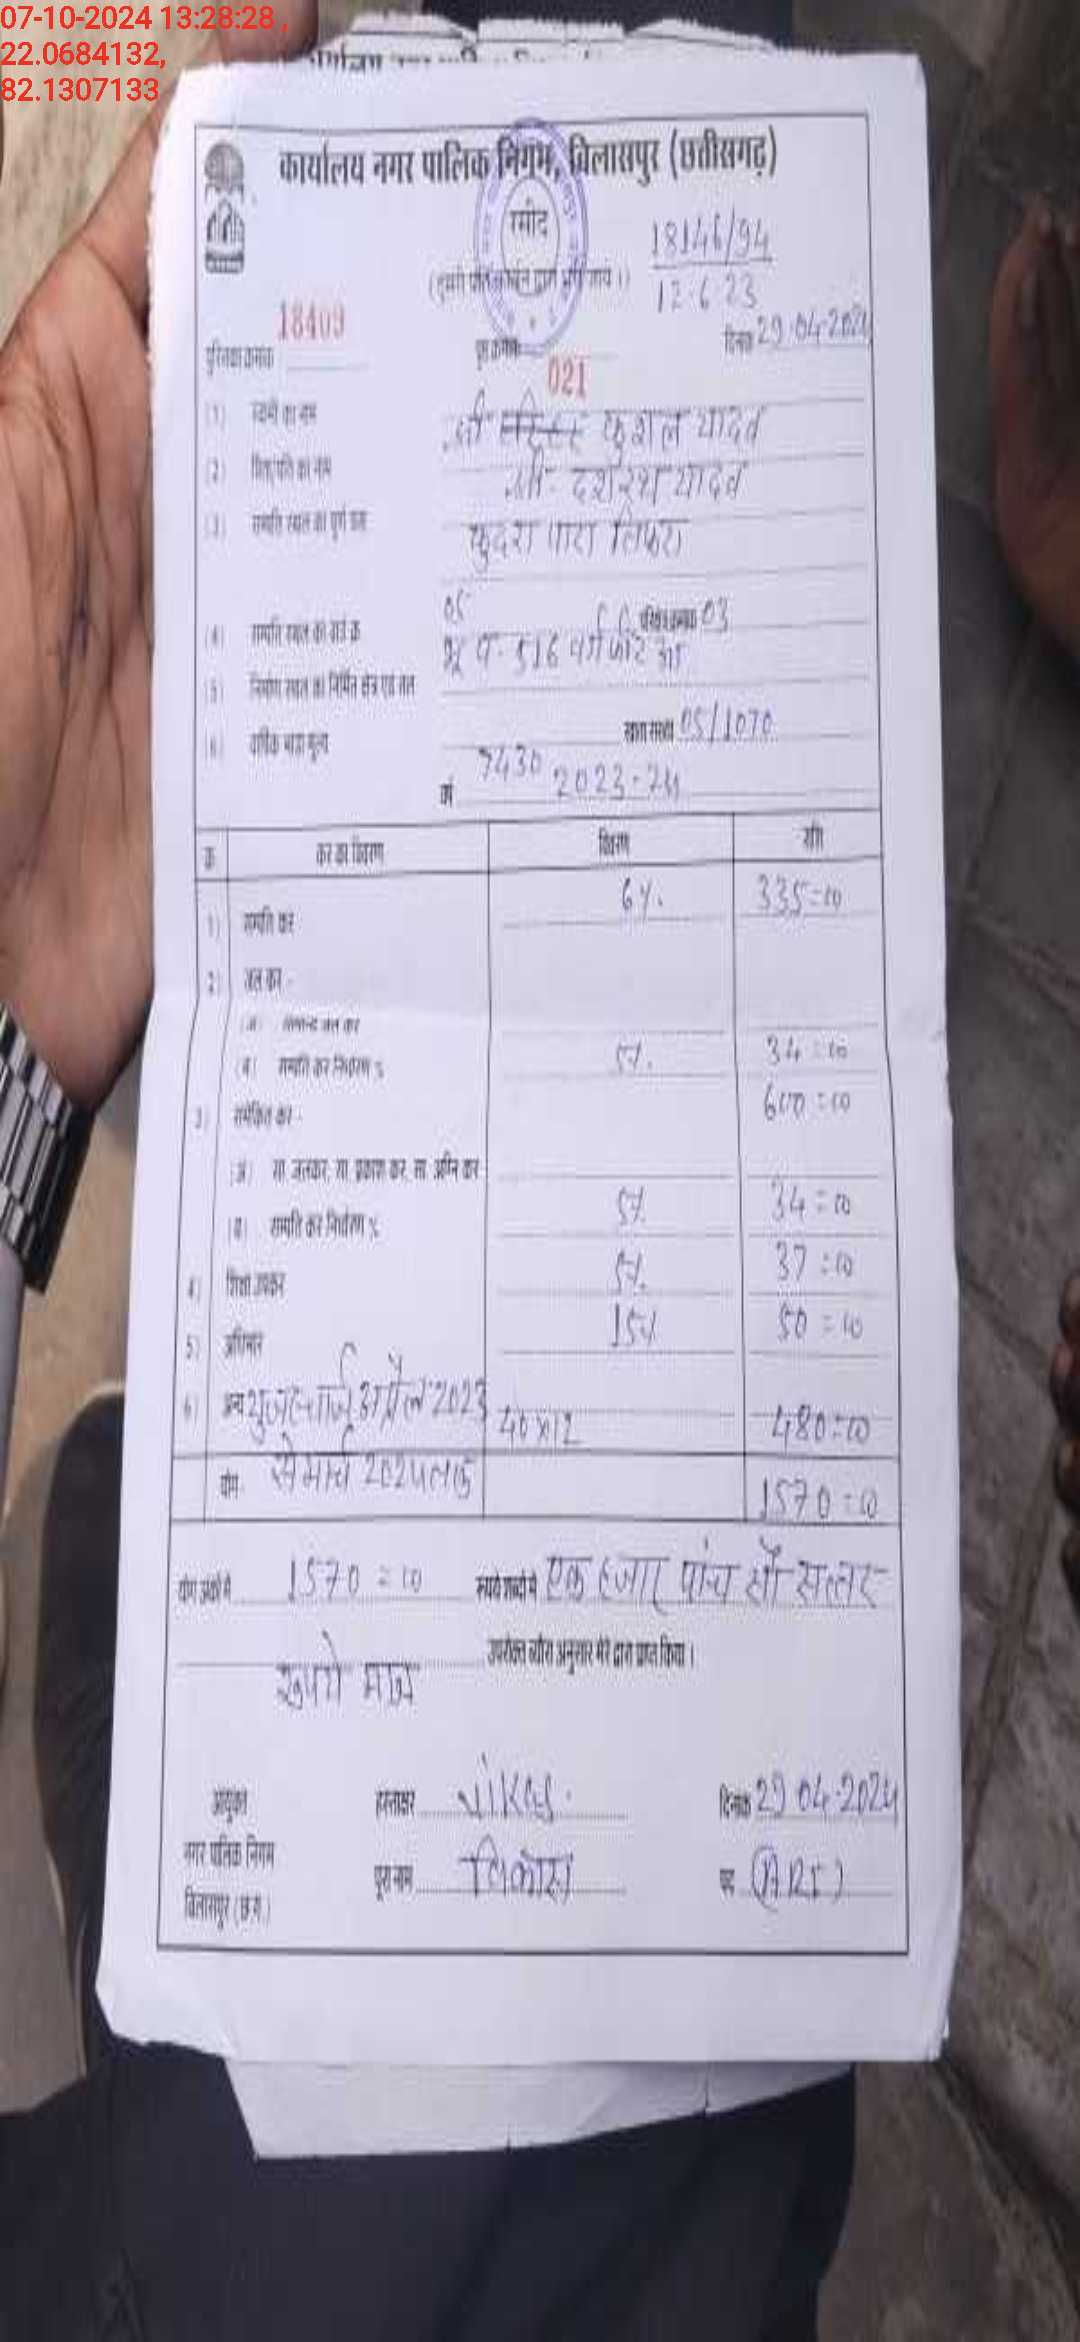 07-10-2024 13:28:28 ,
22.0684132,
82.1307133
कार्यालय नगर पालिक निगम, बिलासपुर (छत्तीसगढ़)
रसीद
18146/94
12.6.23
पुस्तिका क्रमांक 18409
पृष्ठ क्रमांक 021
दिनांक 29.04.2024
(1) स्वामी का नाम श्री कुशल यादव
(2) पिता/पति का नाम श्री - दशरथ यादव
(3) सम्पत्ति स्थल का पूर्ण पता कुदरा पारा तिफरा
(4) सम्पत्ति स्थल का वार्ड क्र 05 परिक्षेत्र क्रमांक 03
(5) निर्माण स्थल का निर्मित क्षेत्र एवं तल 516
(6) वार्षिक भाड़ा मूल्य 7430 05/1070
वर्ष 2023-24
क्र. कर का विवरण विवरण राशि
1) सम्पत्ति कर 6% 335=00
2) जल कर -
(अ) सामान्य जल कर
(ब) सम्पत्ति कर निर्धारण % 5%. 34=00
3) समेकित कर - 600=00
(अ) सा. जलकर, सा. प्रकाश कर, सा. अग्नि कर
(ब) सम्पत्ति कर निर्धारण % 5% 34=00
4) शिक्षा उपकर 5%. 37=00
5) अधिभार 15% 50=00
6) अन्य यूजर चार्ज अप्रैल 2023 40x12 480=00
योग- से मार्च 2024 तक 1570=00
योग अंकों में 1570=00 रूपये शब्दों में एक हजार पांच सौ सत्तर
रूपये मात्र उपरोक्त ब्यौरा अनुसार मेरे द्वारा प्राप्त किया।
आयुक्त हस्ताक्षर vikas. दिनांक 29.04.2024
नगर पालिक निगम पूरा नाम विकास पद (ARI)
बिलासपुर (छ.ग.)